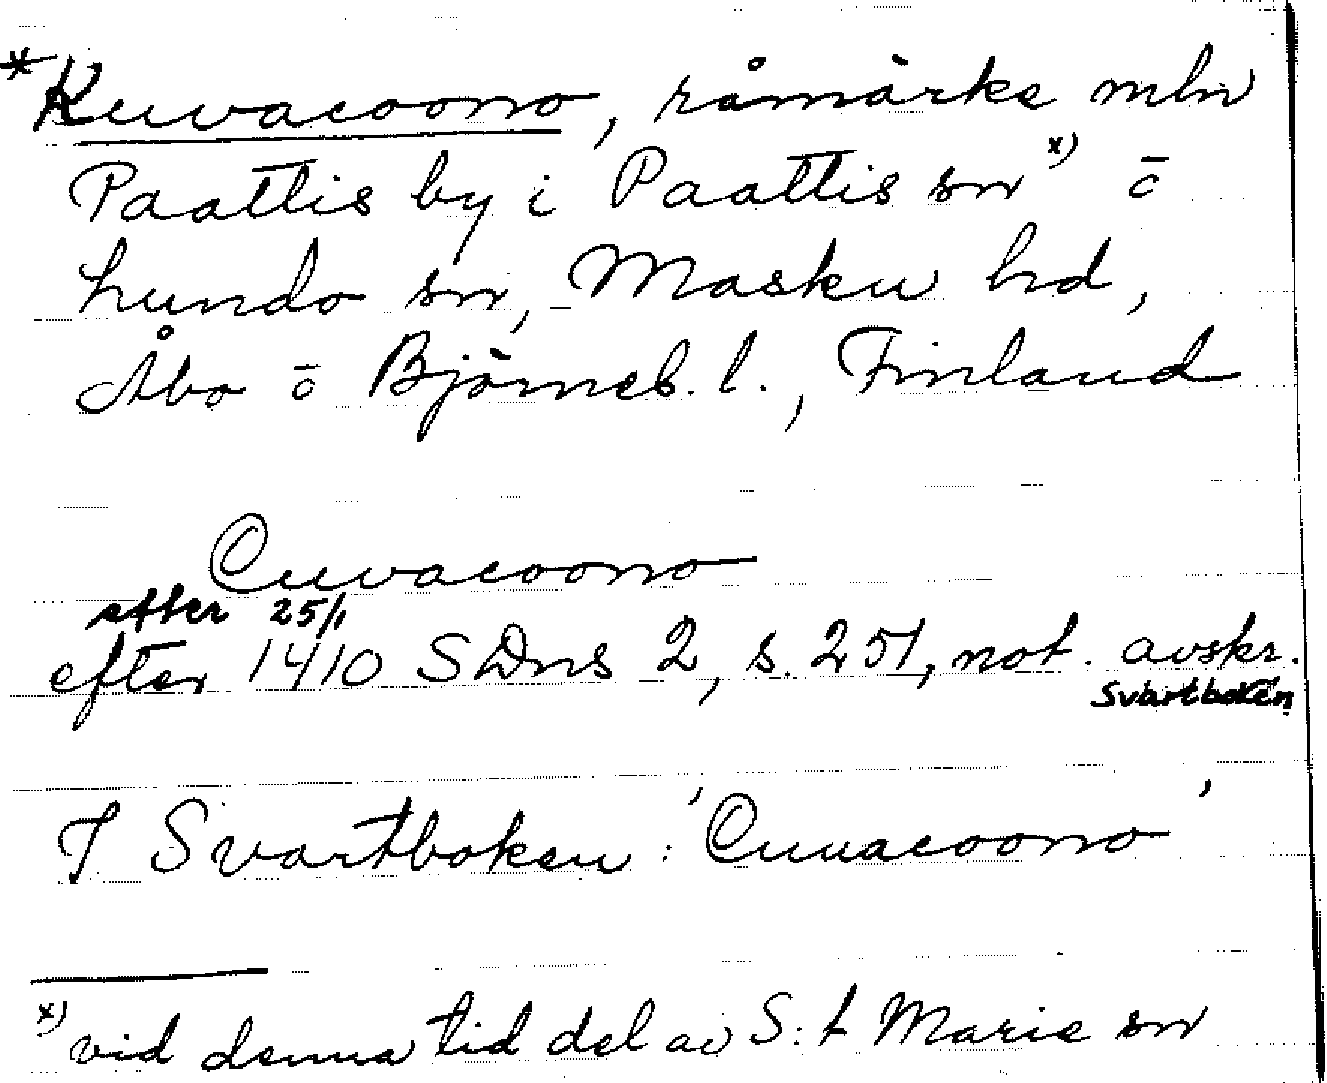 *Kuvacoono, råmärke mln
Paattis by i Paattis sn x) ō
Lundo sn, Masku hd,
Åbo ō Björneb. l., Finland
Cuvacoono
efter 25/1
efter 1410 SDns 2, s. 251, not. avskr.
Svartboken
I Svartboken: 'Cuuacoono'
x) vid denna tid del av S:t Marie sn